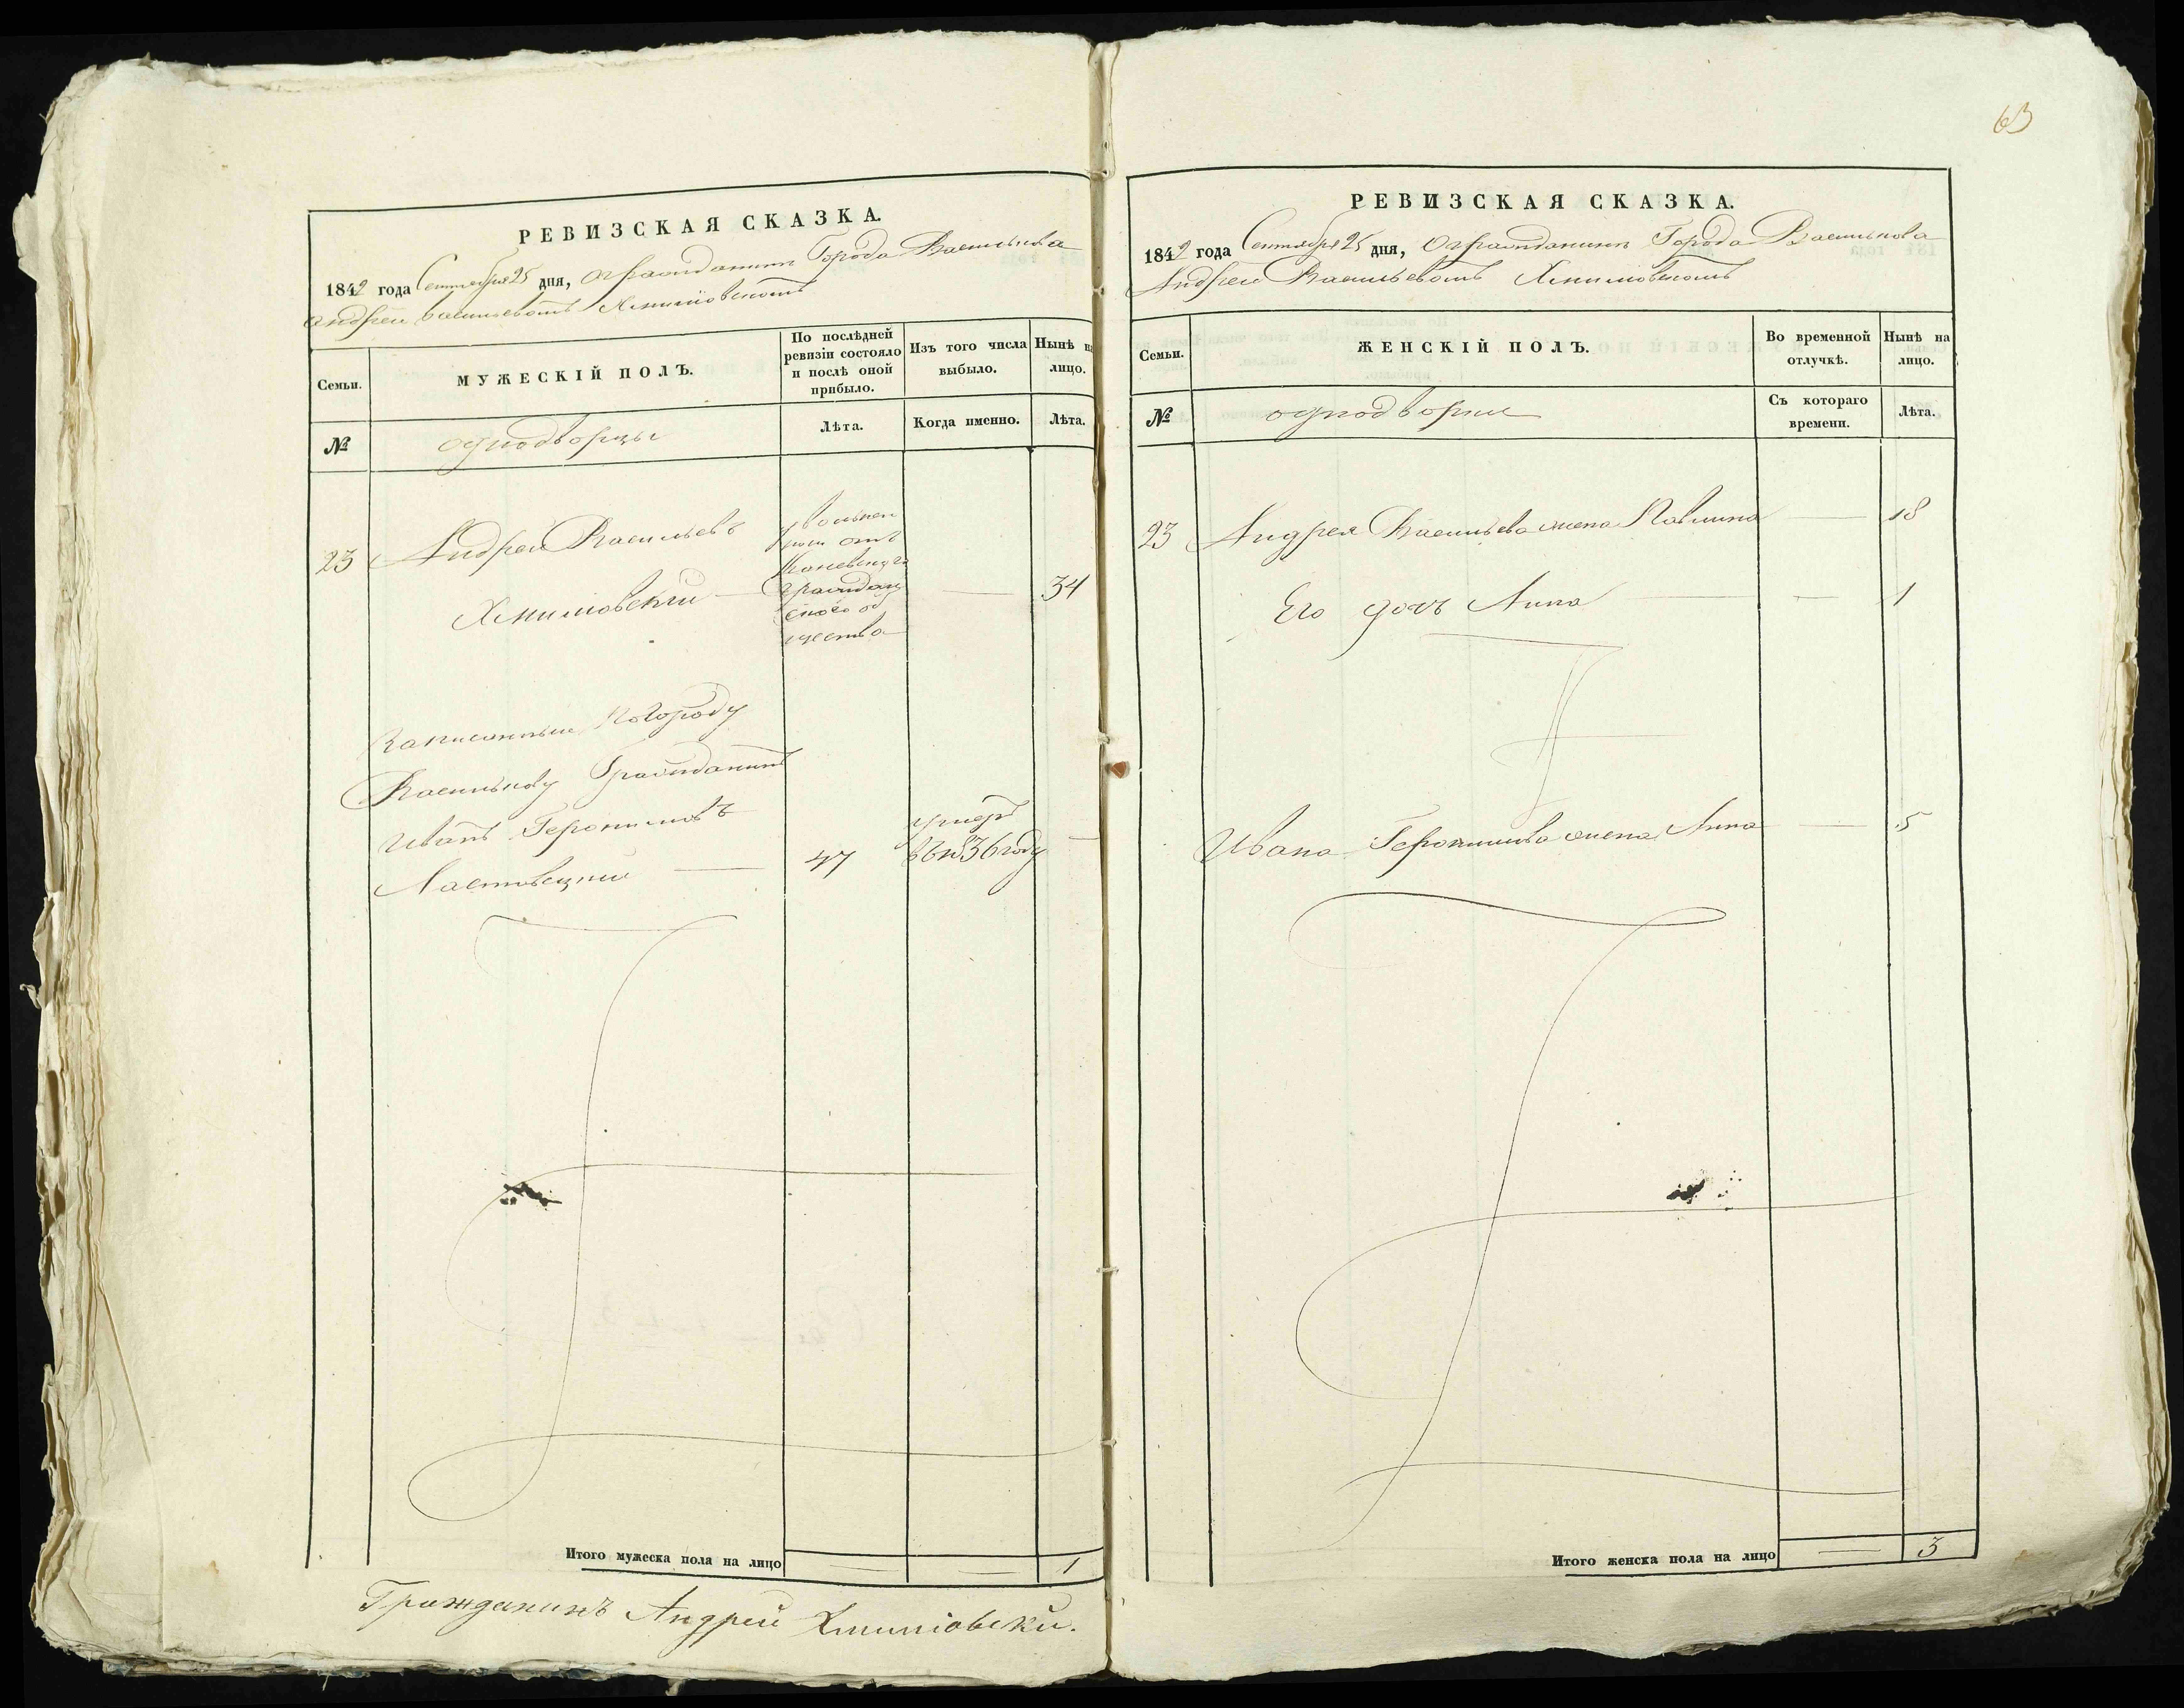 63
РЕВИЗСКАЯ СКАЗКА.
1842 года Сентября 25 дня, о гражданинѣ Города Василькова
Андреи Васильевомъ Хмилiовскомъ
Семьи. МУЖЕСКІЙ ПОЛЪ. По послѣдней ревизіи состояло и послѣ оной прибыло. Изъ того числа выбыло. Нынѣ на лицо.
№ однодворцы Лѣта. Когда именно. Лѣта.
23 Андреи Васильевъ
Хмилiовскiй — 34
уволнен
ныи отъ
Каневскаго
граждан
скаго об
щества
Записанныи По городу
Василькову Гражданинъ
Иванъ Геронимовъ
47 умеръ
въ 1836 году —
Итого мужеска пола на лицо — — 1
Гражданинъ Андрей Хмилiовски.
РЕВИЗСКАЯ СКАЗКА.
1842 года Сентября 25 дня, О гражданинѣ Города Василькова
Андреи Васильевомъ Хмилiовскомъ
Семьи. ЖЕНСКІЙ ПОЛЪ. Во временной отлучкѣ. Нынѣ на лицо.
№ однодворки Съ котораго времени. Лѣта.
23 Андрея Васильева жена Павлина — 18
Его дочь Анна — — 1
Ивана Геронимова жена Анна —
Итого женска пола на лицо — 3